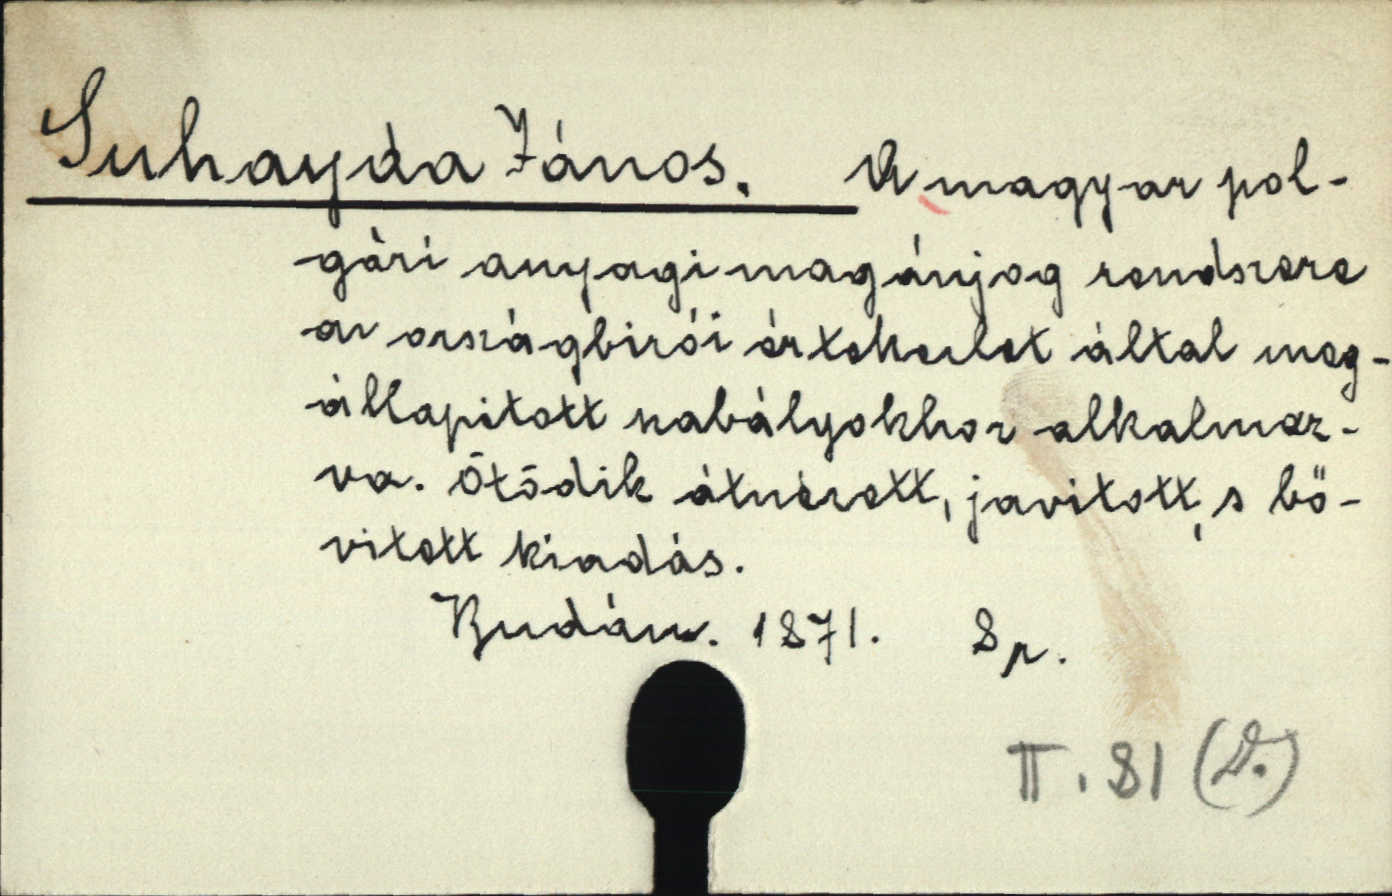 Suhayda János. A magyar pol-
gári anyagi magánjog rendszere
az országbirói értekezlet által meg-
állapitott szabályokhoz alkalmaz-
va. Ötödik átnézett, javitott, s bő-
vitett kiadás.
Budán. 1871. 8 r.
II. 81 (D.)